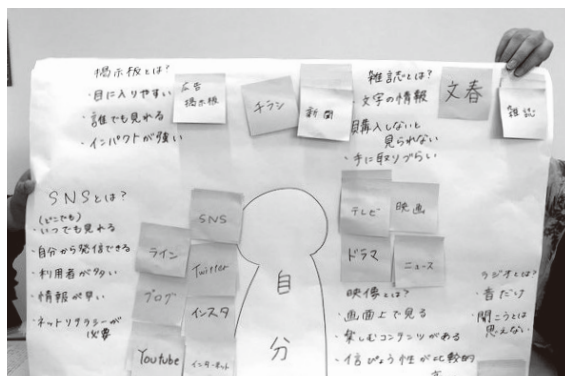 掲示板とは?
・目に入りやすい
・誰でも見れる
・インパクトが強い
広告
掲示板
チラシ
新聞
雑誌とは?
・文字の情報
購入しないと
見られない
・手に取りづらい
文春
雑誌
SNSとは?
(どこでも)
・いつでも見れる
・自分から発信できる
・利用者が多い
・情報が早い
・ネットリテラシーが
必要
SNS
ライン
Twitter
ブログ
インスタ
Youtube
インターネット
自
分
テレビ
映画
ドラマ
ニュース
映像とは?
・画面上で見る
・楽しむコンテンツがある
・信ぴょう性が比較的
ラジオとは?
・音だけ
・聞こうとは
思えない